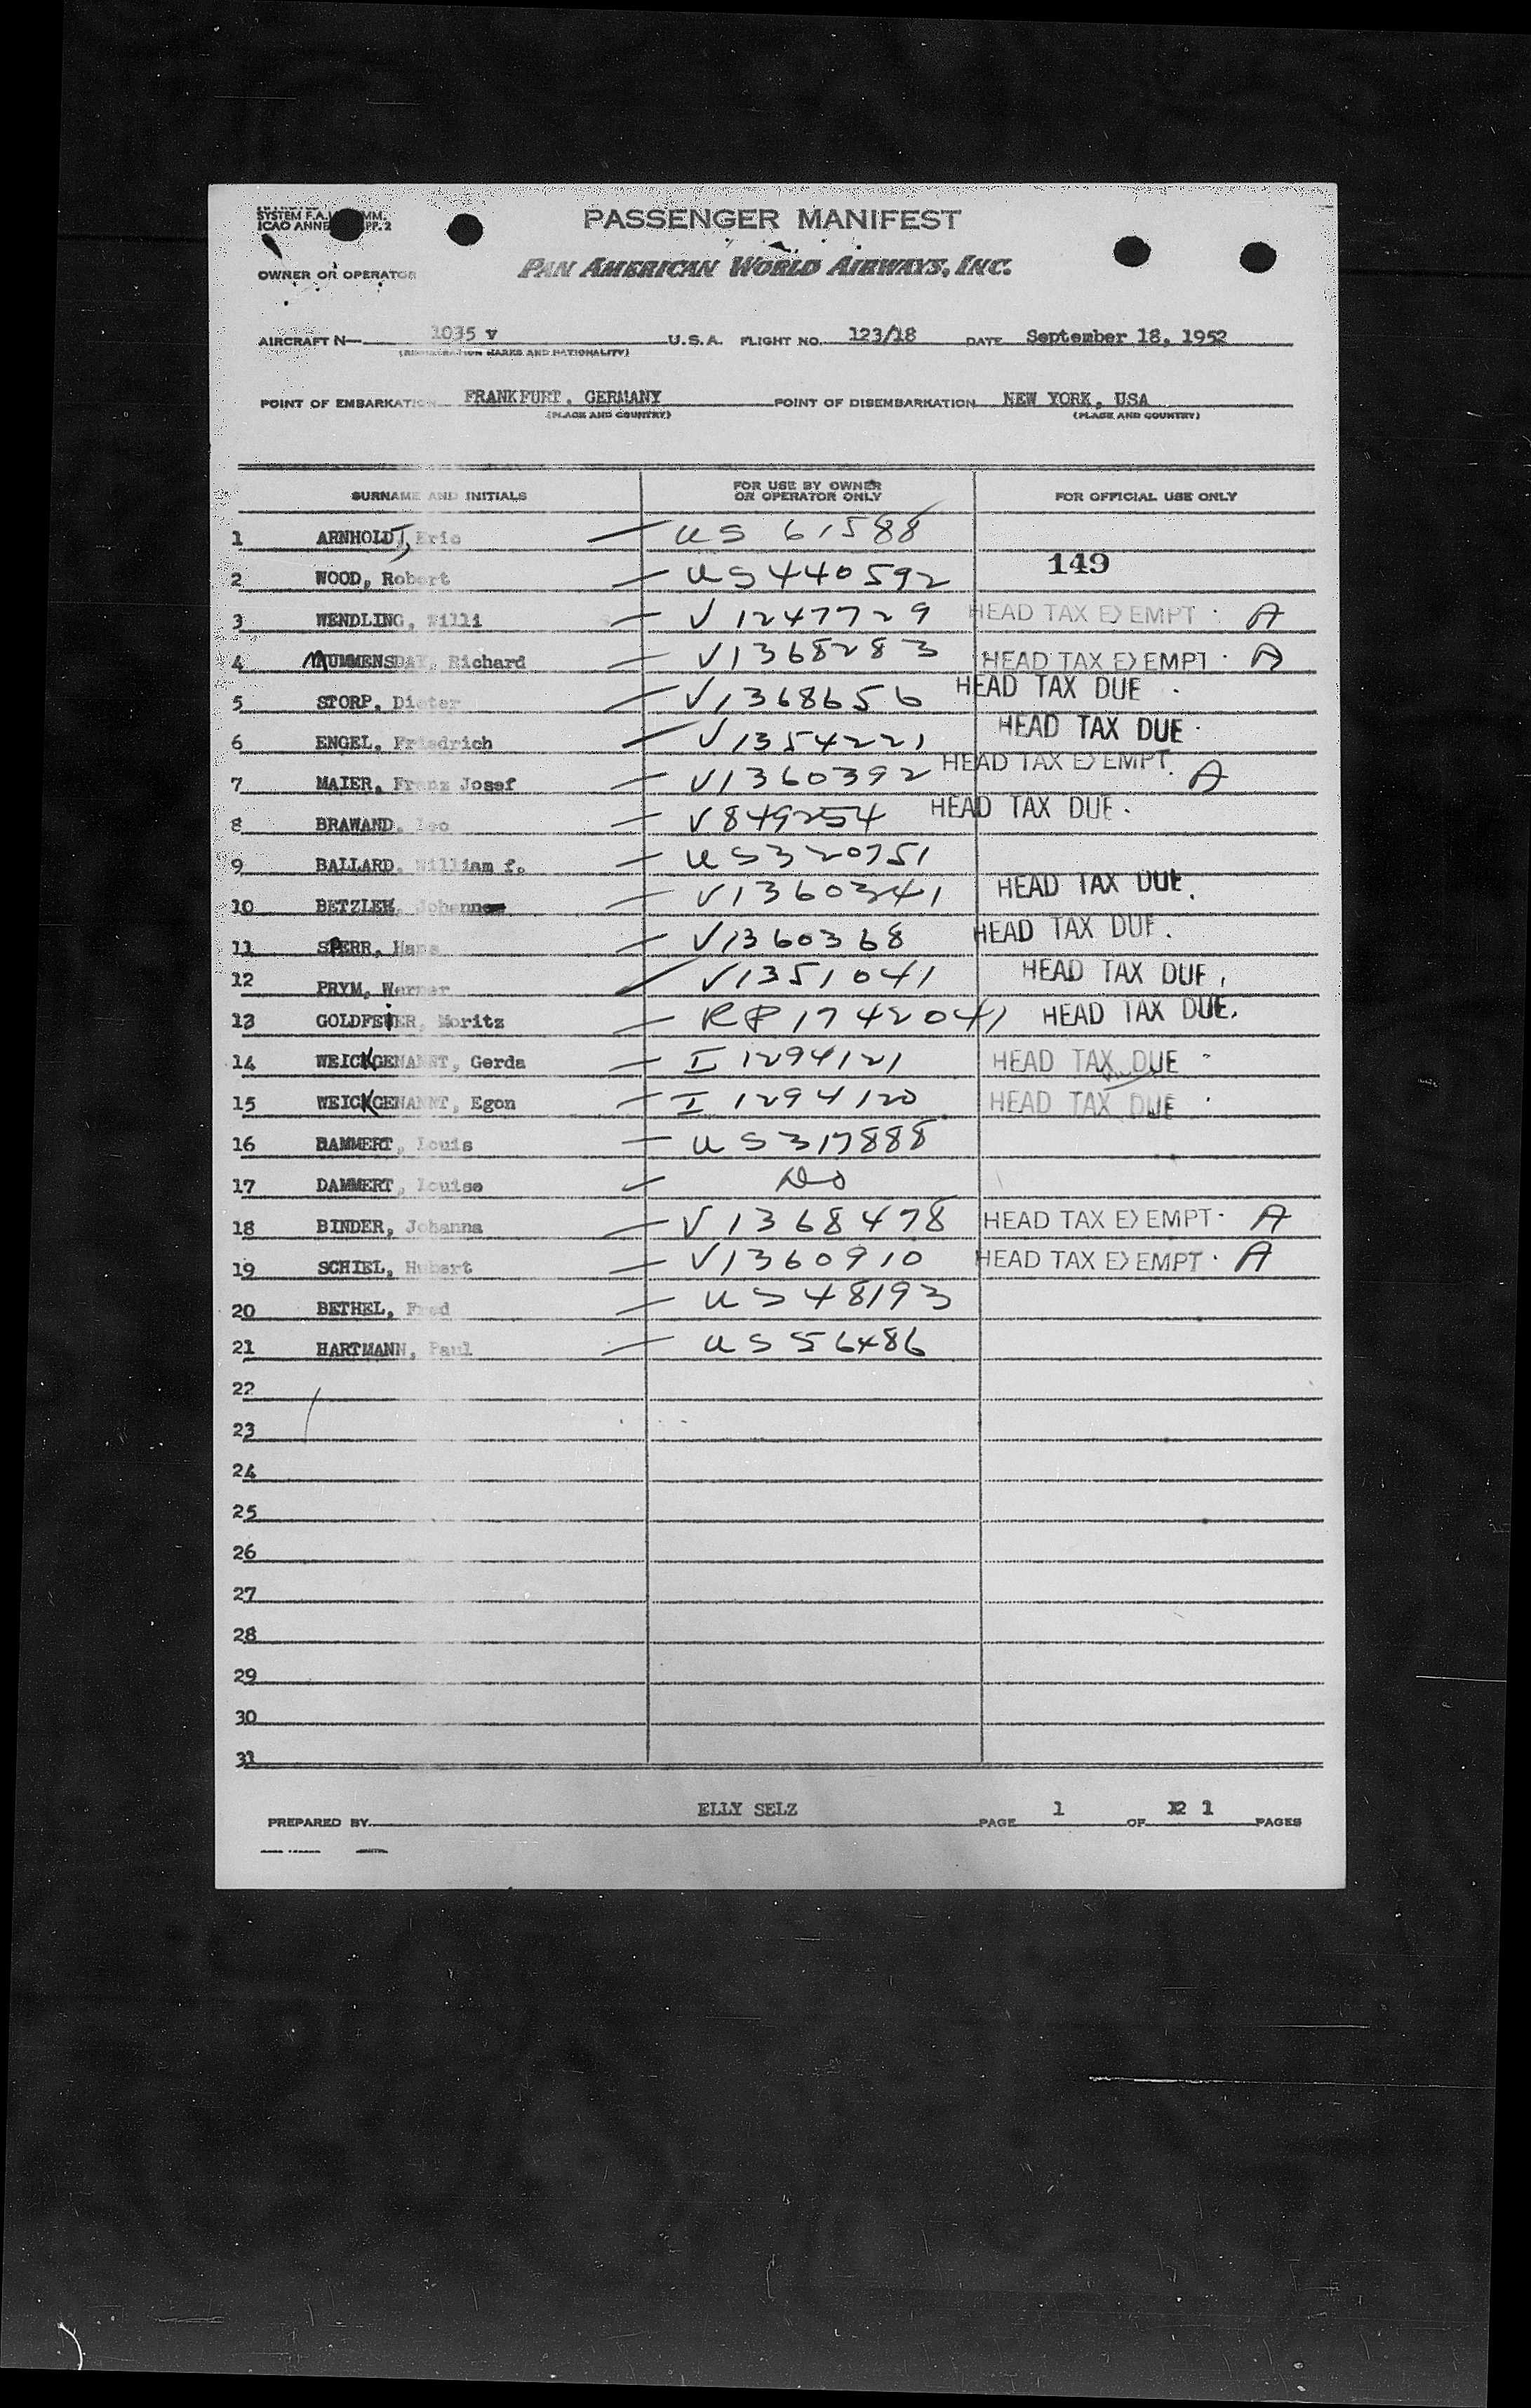 SYSTEM F.A.L. COMM.
ICAO ANNE PP. 2
PASSENGER MANIFEST
OWNER OR OPERATOR PAN AMERICAN WORLD AIRWAYS, INC.
AIRCRAFT N— 1035 v U.S.A. FLIGHT NO. 123/18 DATE September 18, 1952
(REGISTRATION MARKS AND NATIONALITY)
POINT OF EMBARKATION FRANKFURT, GERMANY POINT OF DISEMBARKATION NEW YORK, USA
(PLACE AND COUNTRY) (PLACE AND COUNTRY)
SURNAME AND INITIALS FOR USE BY OWNER OR OPERATOR ONLY FOR OFFICIAL USE ONLY
1 ARNHOLD, Eric — US 61588
2 WOOD, Robert — US 440592 149
3 WENDLING, Willi — V 1247729 HEAD TAX EXEMPT. A
4 MUMMENSDAY, Richard — V1368283 HEAD TAX EXEMPT. A
5 STORP, Dieter — V1368656 HEAD TAX DUE.
6 ENGEL, Friedrich — V1354221 HEAD TAX DUE.
7 MAIER, Franz Josef — V1360392 HEAD TAX EXEMPT. A
8 BRAWAND, Leo — V849254 HEAD TAX DUE.
9 BALLARD, William f. — US320751
10 BETZLER, Johann — V1360341 HEAD TAX DUE.
11 SPERR, Hans — V1360368 HEAD TAX DUE.
12 PRYM, Werner — V1351041 HEAD TAX DUE.
13 GOLDFEIER, Moritz — RP1742041 HEAD TAX DUE.
14 WEICKGENANNT, Gerda — I 1294121 HEAD TAX DUE
15 WEICKGENANNT, Egon — I 1294120 HEAD TAX DUE
16 DAMMERT, Louis — US317888
17 DAMMERT, Louise — Do
18 BINDER, Johanna — V1368478 HEAD TAX EXEMPT. A
19 SCHIEL, Hubert — V1360910 HEAD TAX EXEMPT. A
20 BETHEL, Fred — US48193
21 HARTMANN, Paul — US56486
22
23
24
25
26
27
28
29
30
31
PREPARED BY ELLY SELZ PAGE 1 OF 1 PAGES